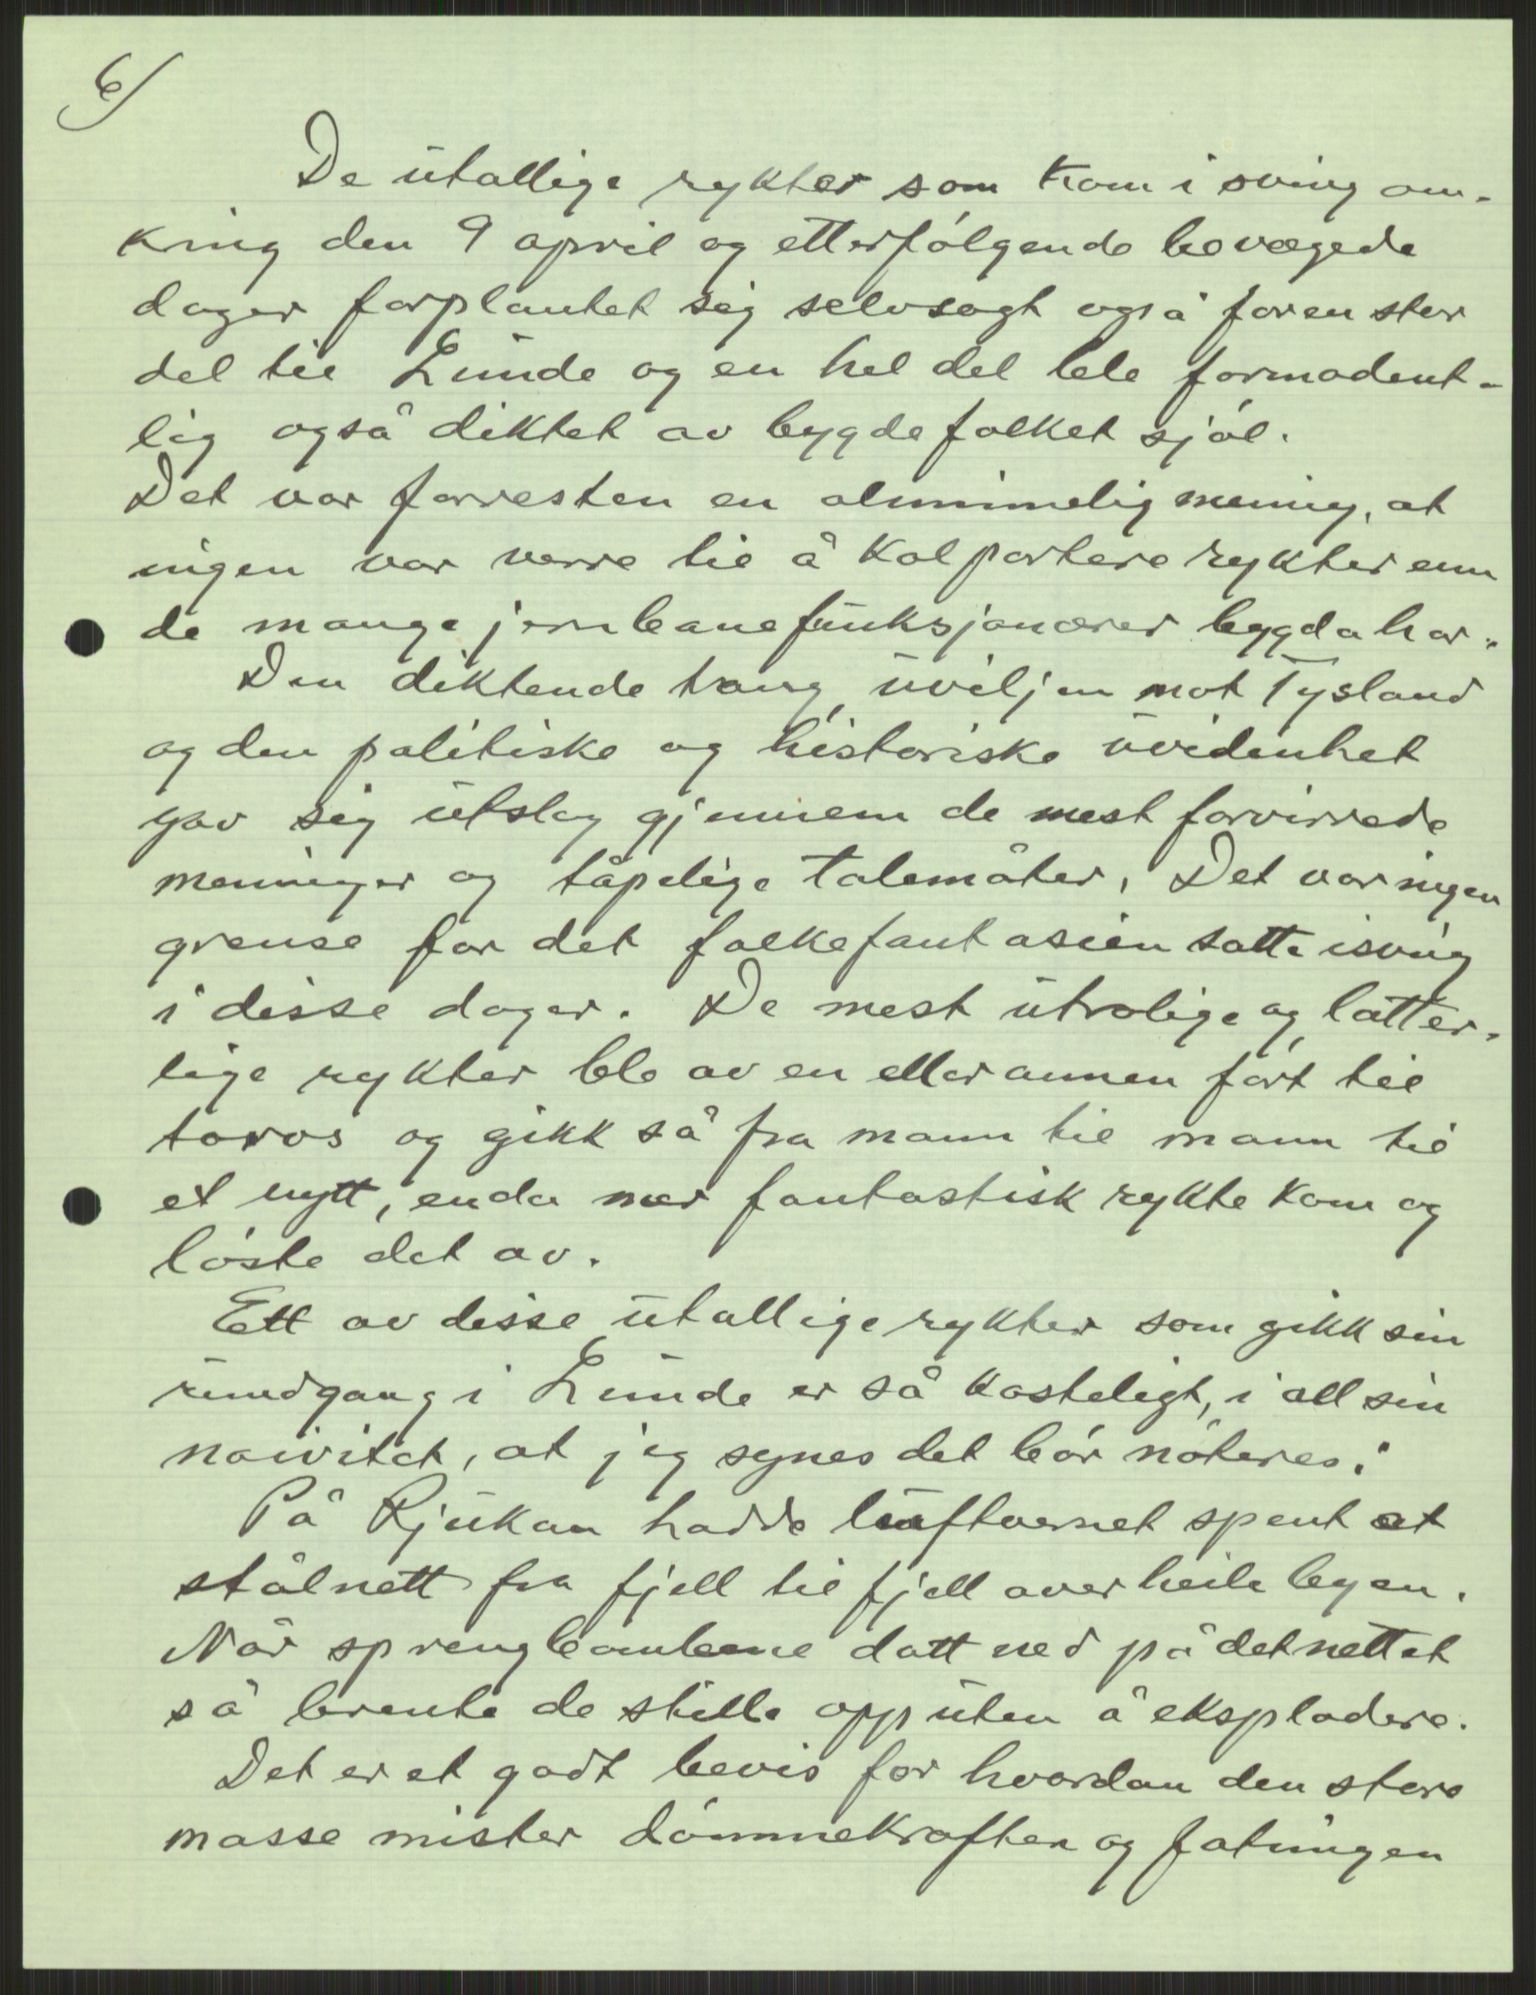 6)
De utallige rykter som kom i sving om-
kring den 9 april og etterfølgende bevægede
dager forplantet sig selvsagt også for en stor
del til Lunde og en hel del ble formodent-
lig også diktet av bygdefolket sjøl.
Det var forresten en alminnelig mening, at
ingen var verre til å kolportere rykter enn
de mange jernbanefunksjonærer bygda har.
Den diktende trang, uviljen mot Tysland
og den politiske og historiske uvidenhet
gav sig utslag gjennem de mest forvirrede
meninger og tåpelige talemåter. Det var ingen
grense for det folkefantasien satte isving
i disse dager. De mest utrolige og latter-
lige rykter ble av en eller annen ført til
torvs og gikk så fra mann til mann til
et nytt, enda mer fantastisk rykte kom og
løste det av.
Ett av disse utallige rykter som gikk sin
rundgang i Lunde er så kosteligt, i all sin
naivitet, at jeg synes det bør noteres:
På Rjukan hadde luftvernet spent et
stålnett fra fjell til fjell over heile byen.
Når sprengbombene datt ned på det nettet
så brente de stille opp uten å eksplodere.
Det er et godt bevis for hvordan den store
masse mister dømmekraften og fatningen